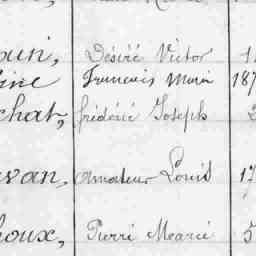 ouin, Désiré Victor 1
ine Francois Marie 187
chat, frédéric Joseph 2
van, amateur Louis 17
houx, Pierre Marie 5